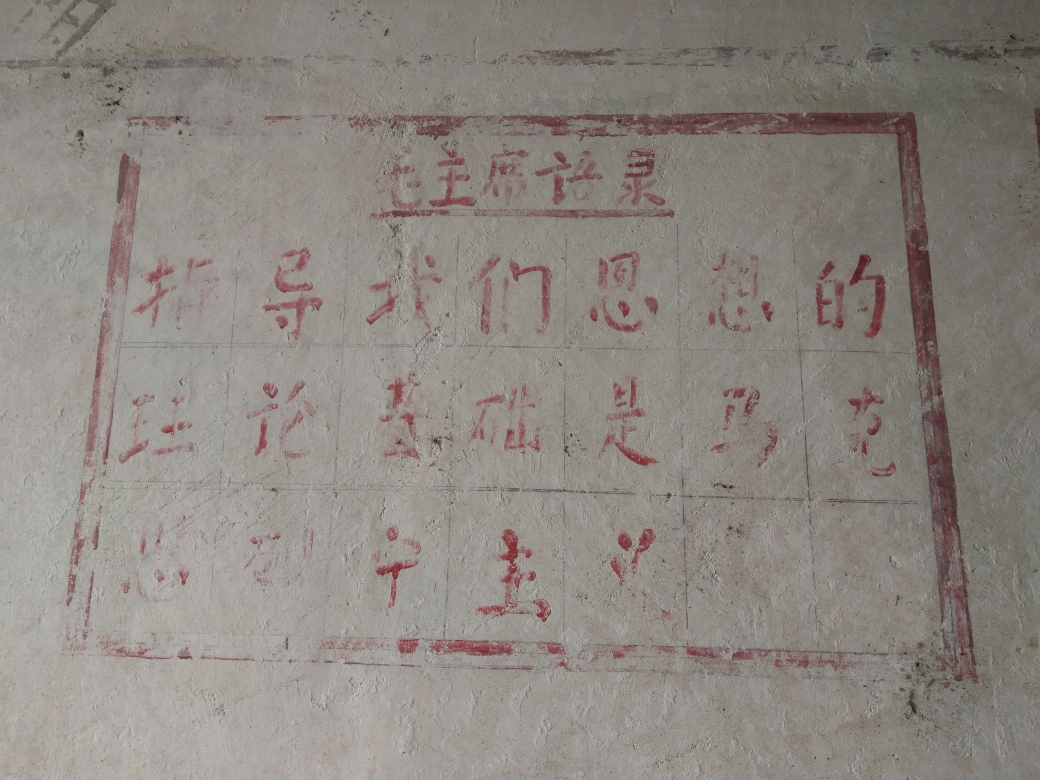 毛主席语录
指导我们思想的
理论基础是马克
思列宁主义